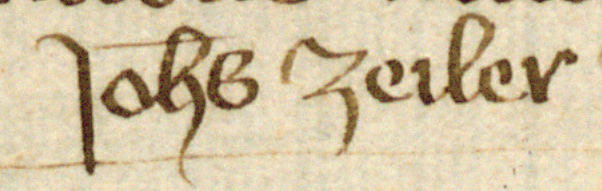 Johs Zeiler